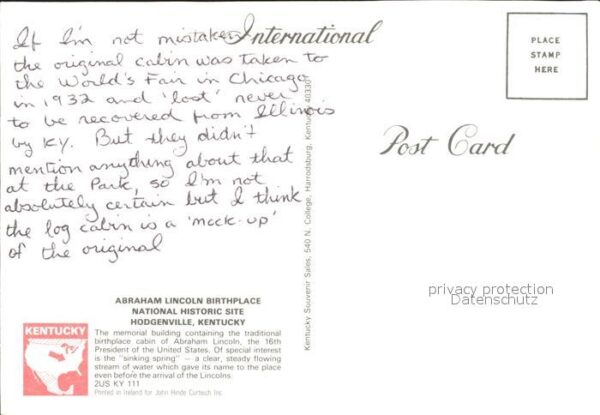 If I'm not mistaken
the original cabin was taken to
the World's Fair in Chicago
in 1932 and 'lost' never
to be recovered from Illinois
by KY. But they didn't
mention anything about that
at the Park, so I'm not
absolutely certain but I think
the log cabin is a 'mock-up'
of the original
International
Post Card
PLACE
STAMP
HERE
Kentucky Souvenir Sales, 540 N. College, Harrodsburg, Kentucky 40330
privacy protection
Datenschutz
ABRAHAM LINCOLN BIRTHPLACE
NATIONAL HISTORIC SITE
HODGENVILLE, KENTUCKY
KENTUCKY
The memorial building containing the traditional
birthplace cabin of Abraham Lincoln, the 16th
President of the United States. Of special interest
is the "sinking spring" – a clear, steady flowing
stream of water which gave its name to the place
even before the arrival of the Lincolns.
2US KY 111
Printed in Ireland for John Hinde Curteich Inc